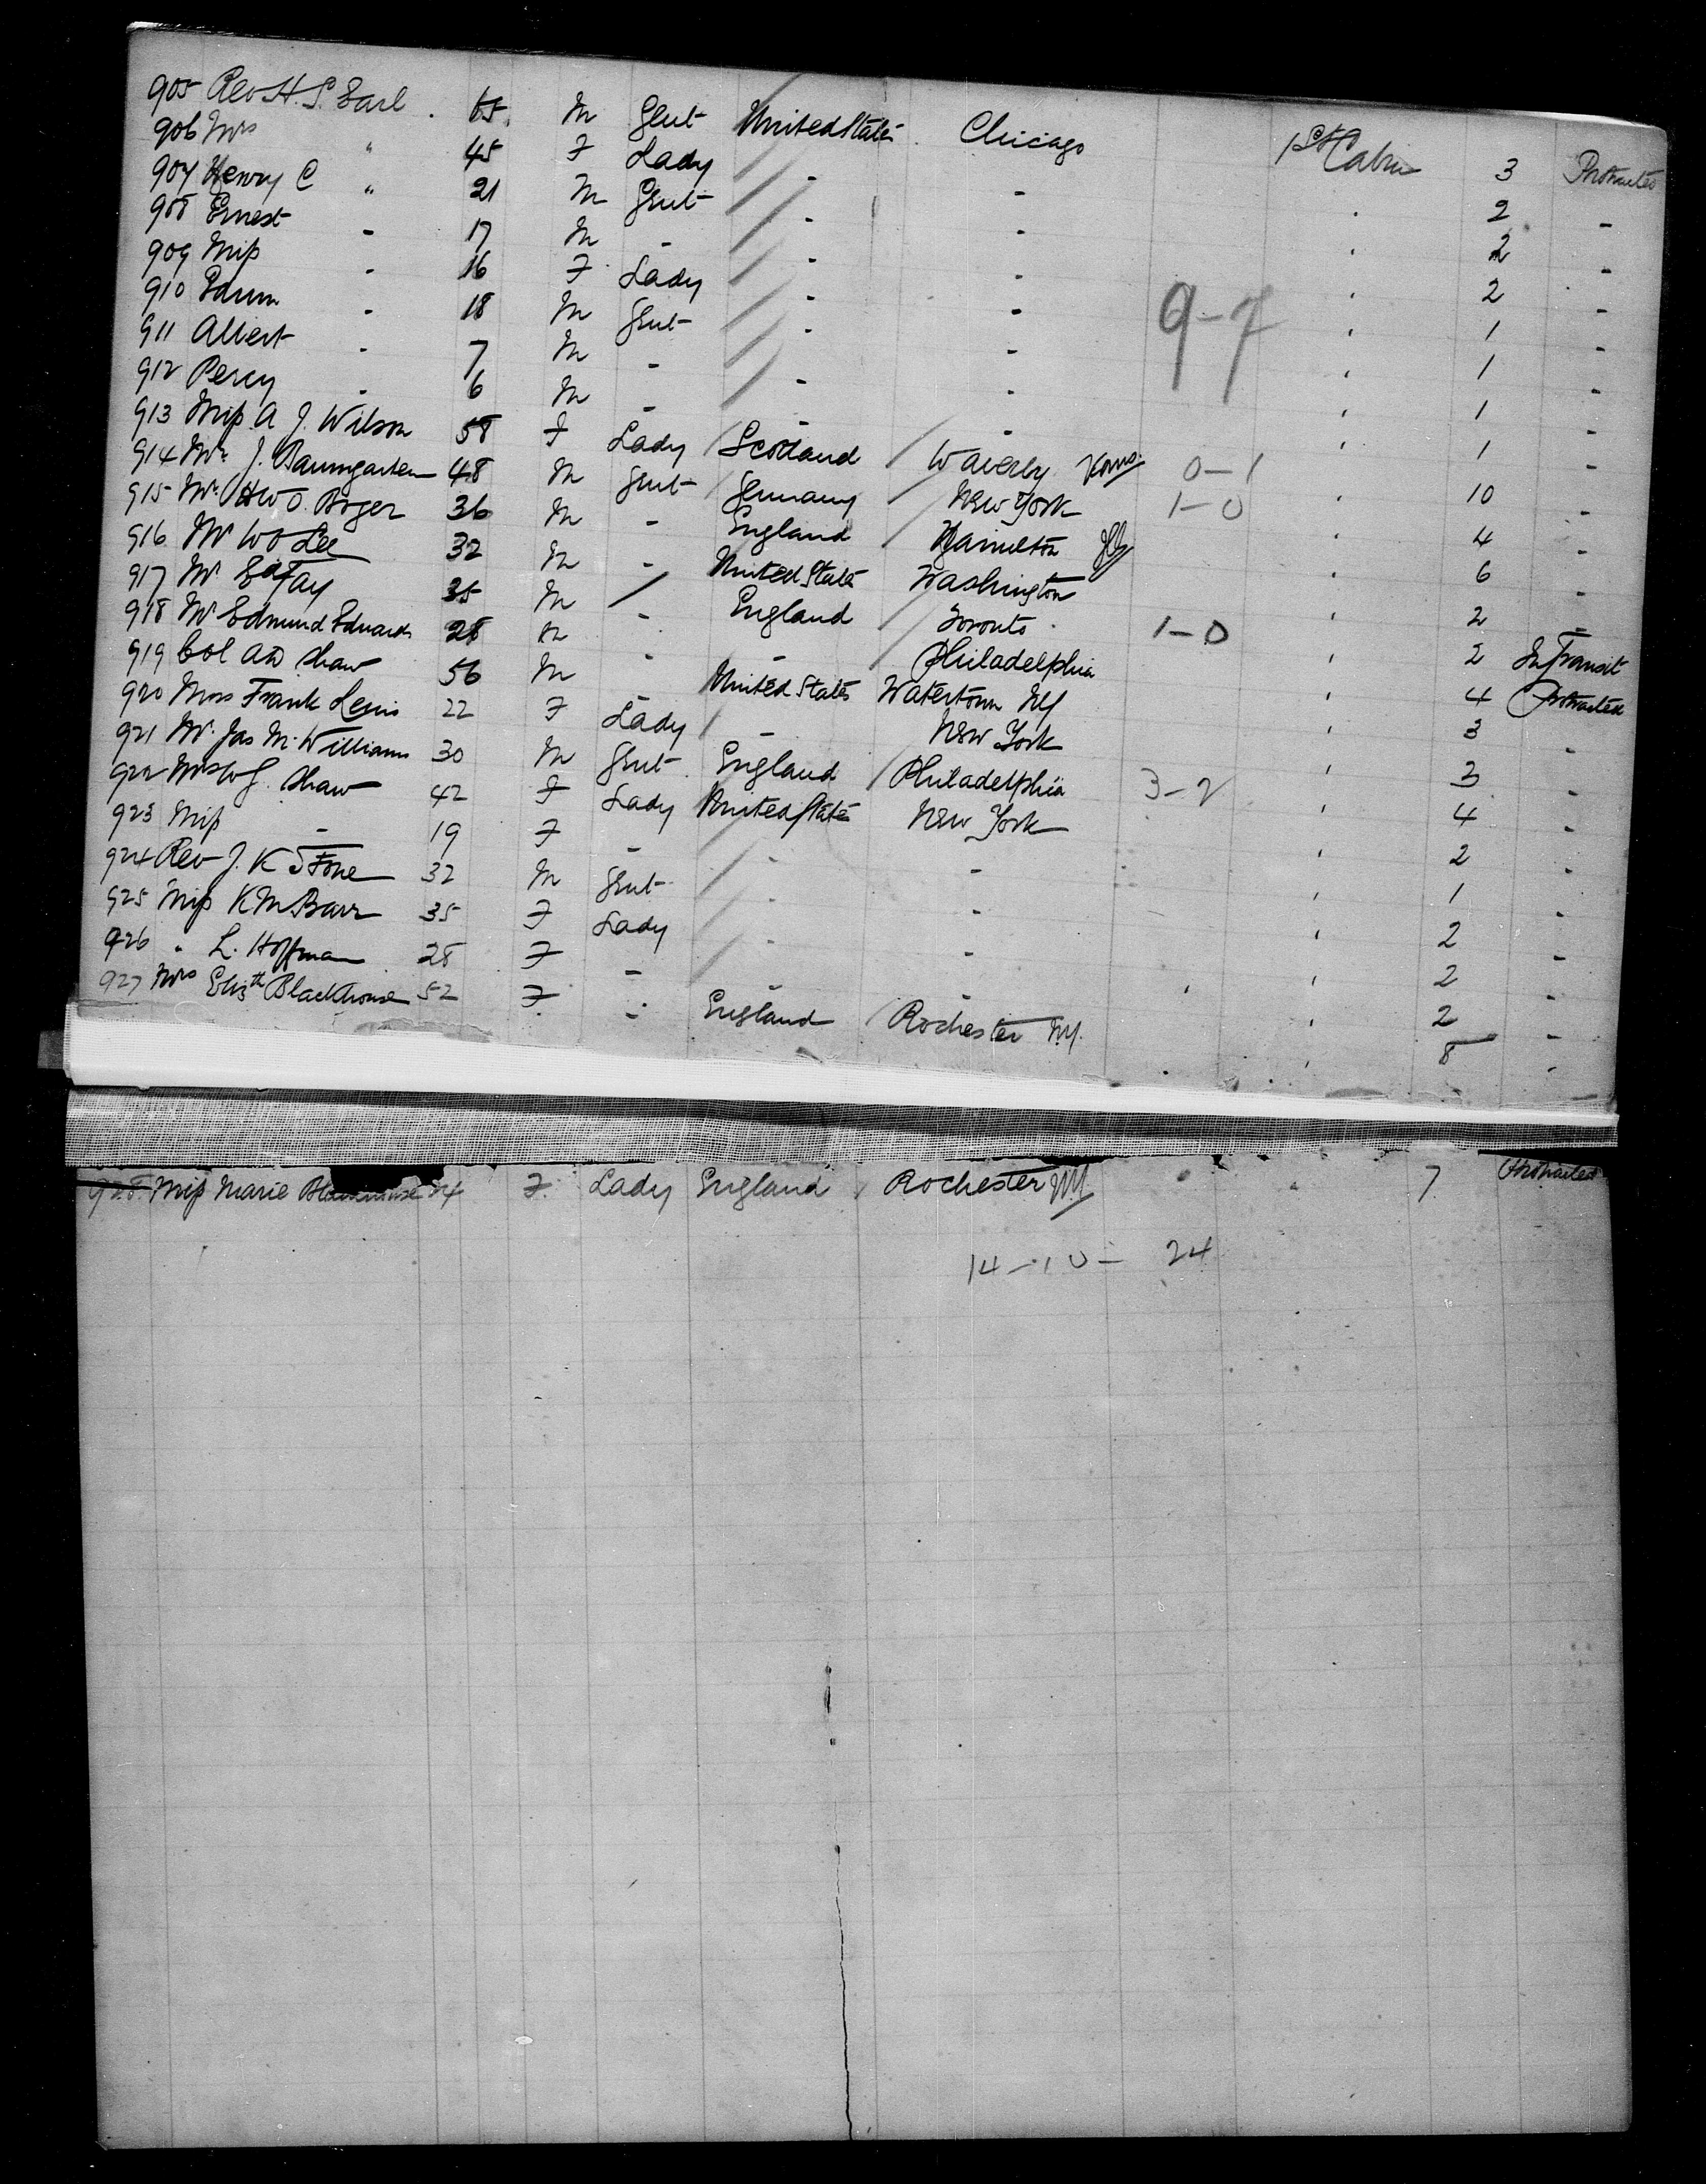 905 Rev H. S. Earl . 65 M Gent United States Chicago 1st Cabin 3 Protracted
906 Mrs " 45 F Lady - - ' 2 -
907 Henry C " 21 M Gent - - ' 2 -
908 Ernest - 17 M - - - ' 2 -
909 Miss - 16 F Lady - - ' 1 -
910 - 18 M Gent - - ' 1 -
911 Albert - 7 M - - - ' 1 -
912 Percy - 6 M - - - ' 1 -
9-7
913 Miss A J. Wilson 58 F Lady Scotland Waverly Kans. 0-1 ' 10 -
914 Mr. J. Baumgarten 48 M Gent Germany New York 1-0 ' 4 -
915 Mr. H W O. Boger 36 M - England Hamilton ' 6 -
916 Mr W O Lee 32 M - United States Washington ' 2 -
917 Mr. Fay 35 M England Toronto 1-0 ' 2 In Transit
918 Mr Edmund Edwards 28 M - - Philadelphia ' 4 Protracted
919 Col A D Shaw 56 M - United States Watertown NY ' 3 -
920 Mrs Frank Lewis 22 F Lady - New York ' 3 -
921 Mr. Jas M. Williams 30 M Gent England Philadelphia 3-2 ' 4 -
922 Mrs W J. Shaw 42 F Lady United States New York ' 2 -
923 Miss - 19 F - - - ' 1 -
924 Rev J. K Stone 32 M Gent - - ' 2 -
925 Miss K M Barr 35 F Lady - - ' 2 -
926 " L. Hoffman 28 F - - - ' 2 -
927 Mrs Elizth Blackhouse 52 F - England Rochester N.Y. ' 8 -
928 Miss Marie Blackhouse 24 F Lady England Rochester NY " 7 Protracted
14-10- 24